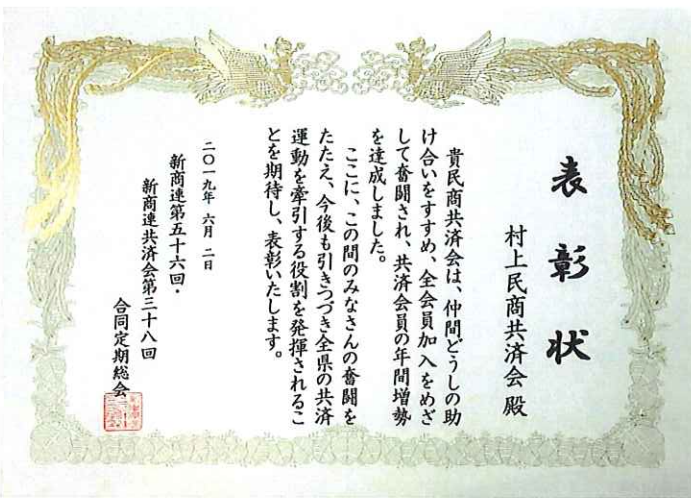 表彰状
村上民商共済会殿
貴民商共済会は、仲間どうしの助
け合いをすすめ、全会員加入をめざ
して奮闘され、共済会員の年間増勢
を達成しました。
ここに、この間のみなさんの奮闘を
たたえ、今後も引きつづき全県の共済
運動を牽引する役割を発揮されるこ
とを期待し、表彰いたします。
二〇一九年 六月 二日
新商連第五十六回・
新商連共済会第三十八回
合同定期総会